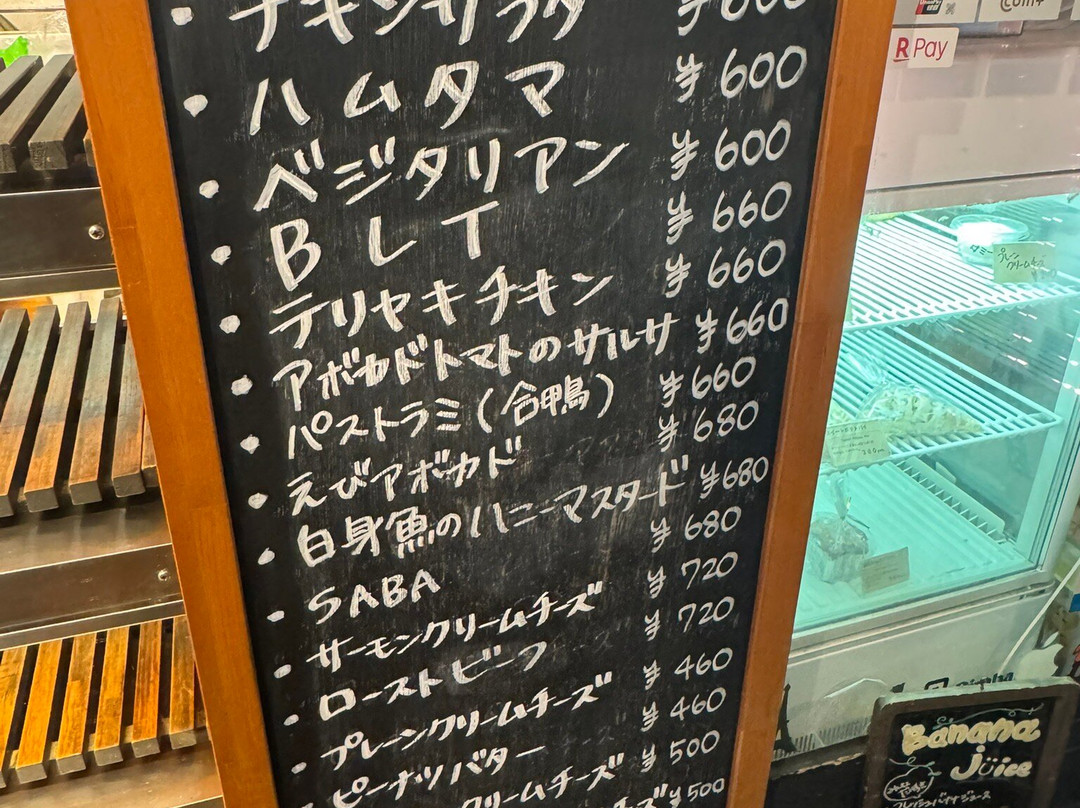 ・チキンサラダ ¥600
・ハムタマ ¥600
・ベジタリアン ¥600
・BLT ¥660
・テリヤキチキン ¥660
・アボカドトマトのサルサ ¥660
・パストラミ(合鴨) ¥660
・えびアボカド ¥680
・白身魚のハニーマスタード ¥680
・SABA ¥680
・サーモンクリームチーズ ¥720
・ローストビーフ ¥720
・プレーンクリームチーズ ¥460
・ピーナツバター ¥460
クリームチーズ ¥500
ーズ ¥500
R Pay
プレーン
クリームチーズ
Banana
juice